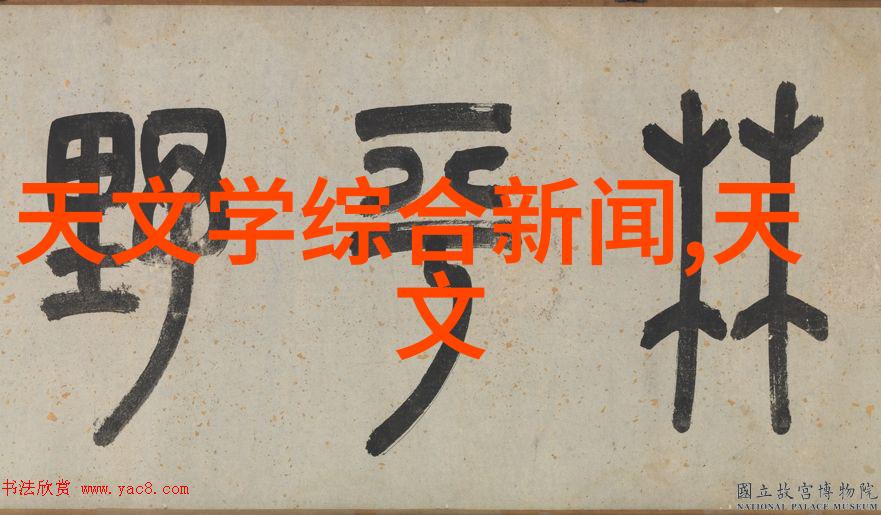 林 野
天文学综合新闻,天
文
书法欣赏 www.yac8.com
國立故宮博物院
NATIONAL PALACE MUSEUM